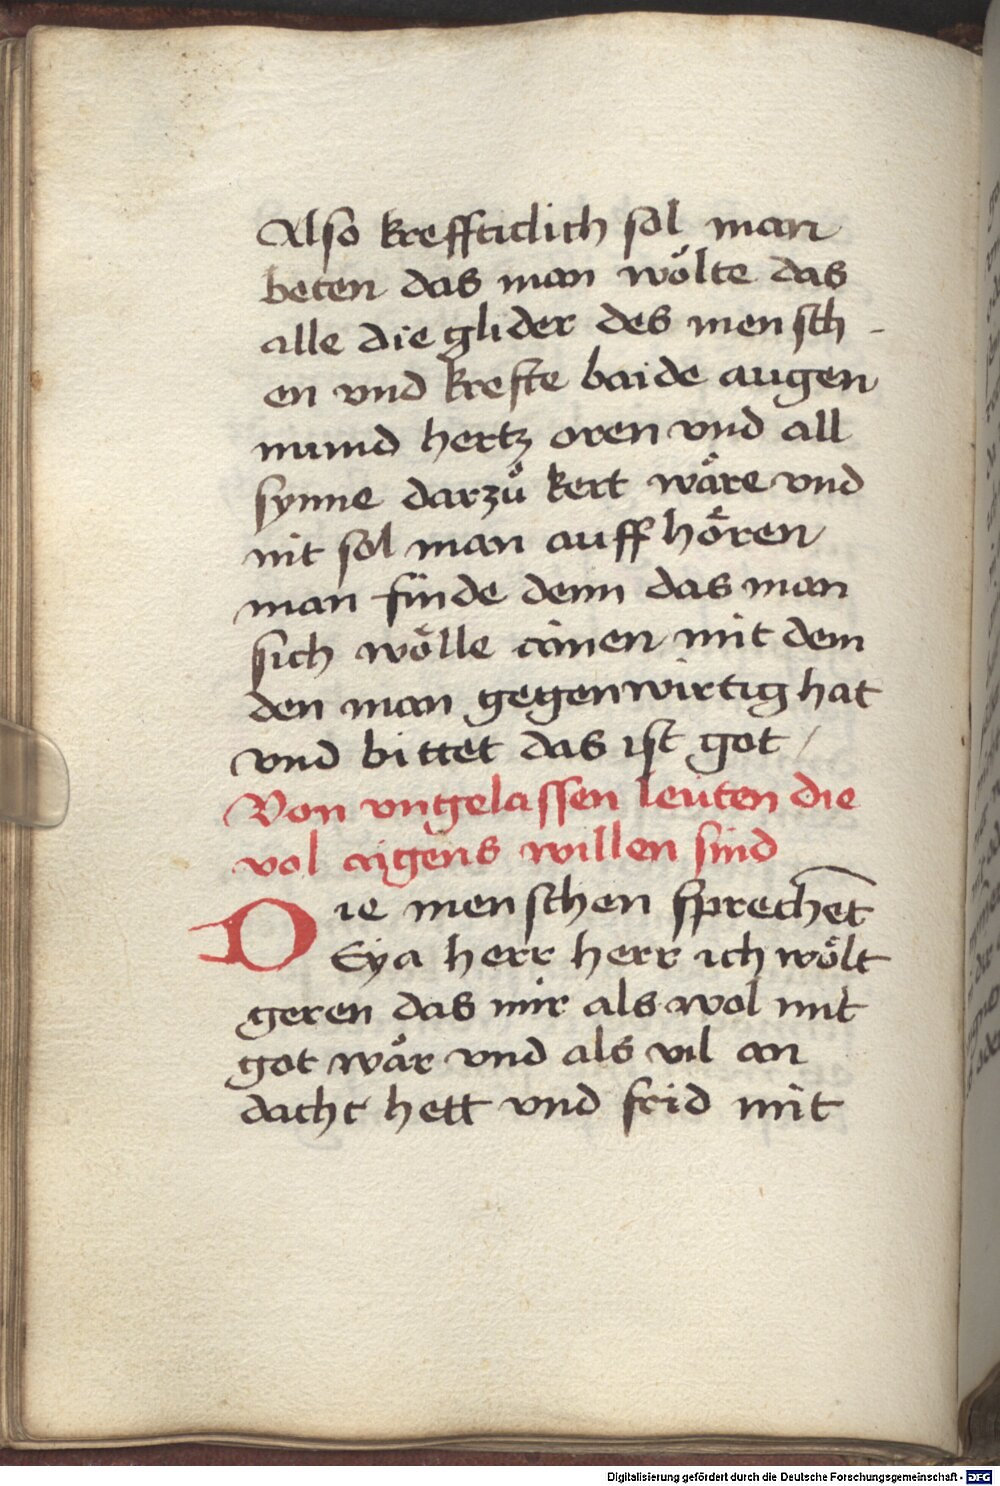 Also kreffticlich sol man
beten das man wölte das
alle die glider des mensch-
en vnd krefte baide augen
mund hertz oren vnd all
synne darzuͦ kert wäre vnd
nit sol man auff hören
man finde denn das man
sich wölle ainen mit dem
den man gegenwirtig hat
vnd bittet das ist got /
Von vngelassen leuten die
vol aigens willen sind
Die menschen sprechēt
Eya herr herr ich wölt
geren das mir als wol mit
got wär vnd als vil an
dacht hett vnd frid mit
Digitalisierung gefördert durch die Deutsche Forschungsgemeinschaft - DFG